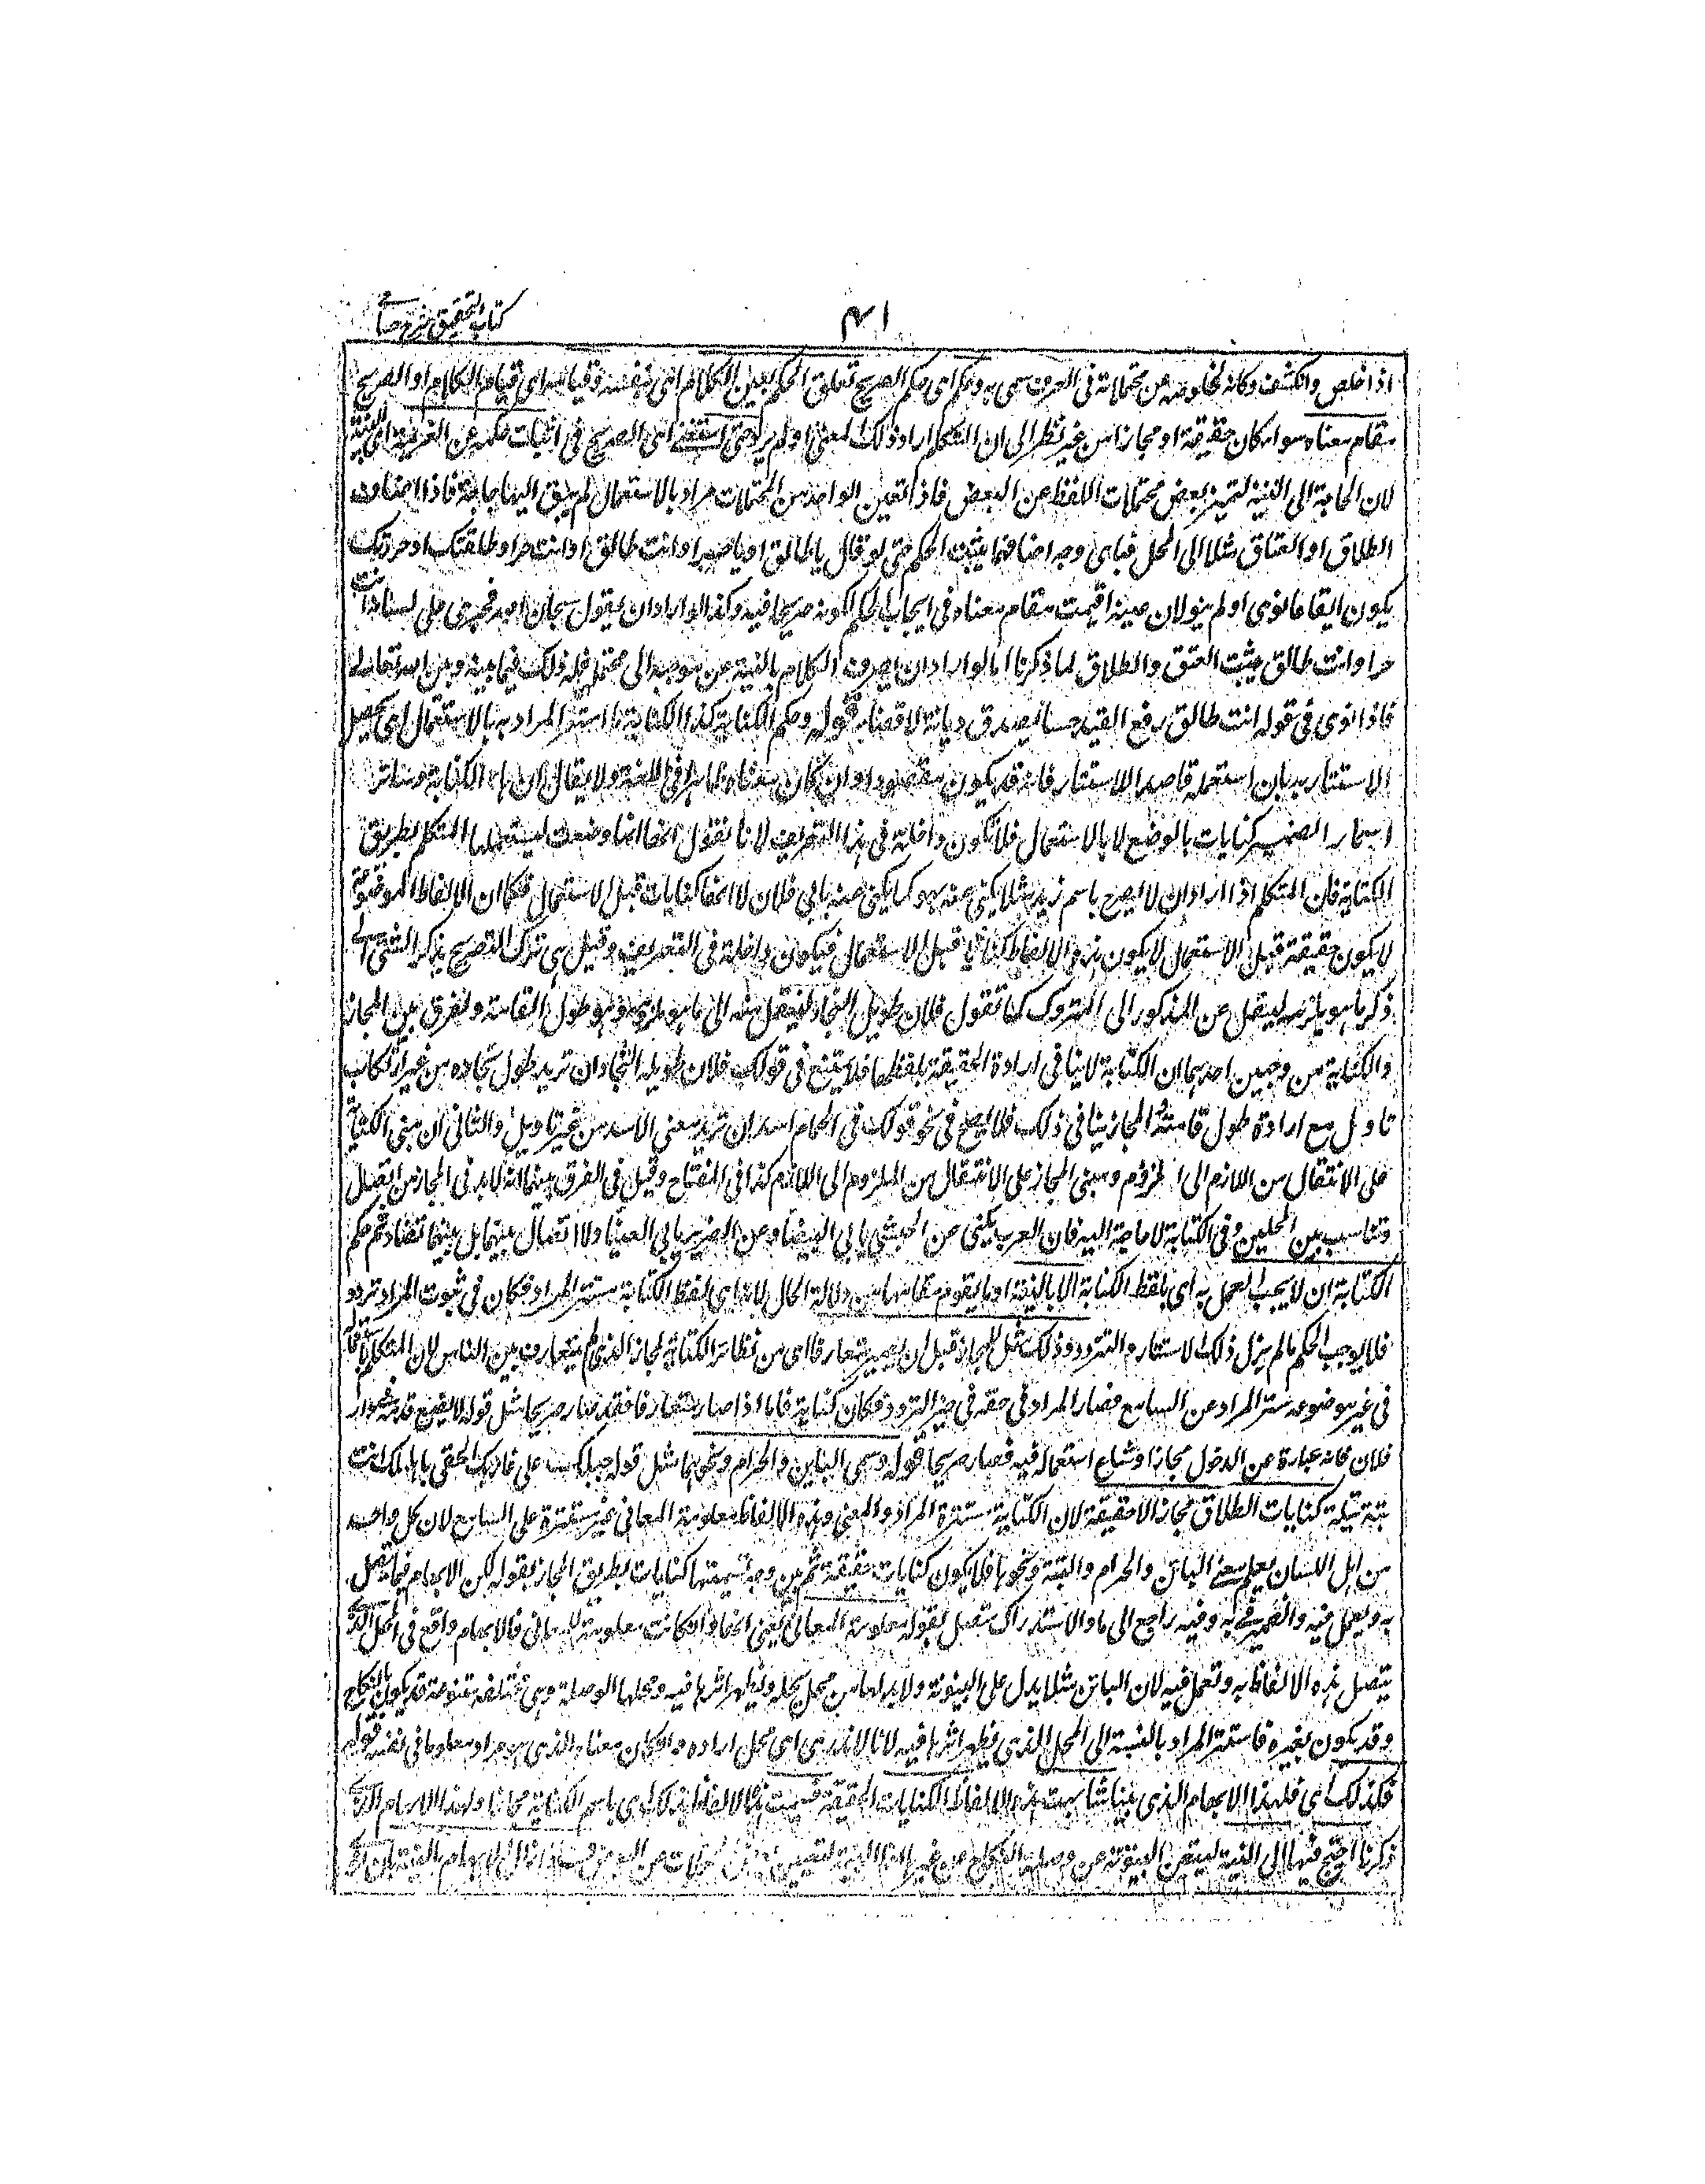 كتاب التحقيق شرح حسامى
٤١
اذا خلص وانكشف وكانه لخلوصه عن محتملاته فى العرف سمى به وحكمه اى حكم الصريح تعلق الحكم بعين الكلام اى بنفسه وقيامه اى قيام الكلام او الصريح
مقام معناه سواء كان حقيقة او مجازا من غير نظر الى ان المتكلم اراد ذلك المعنى او لم يرد حتى استغنى اى الصريح فى اثبات حكمه عن العزيمة اى النية
لان الحاجة الى النية لتميز بعض محتملات اللفظ عن البعض فاذا تعين الواحد من المحتملات مرادا بالاستعمال لم يبق اليها حاجة فاذا اضاف
الطلاق او العتاق مثلا الى المحل فباى وجه اضافهما يثبت الحكم حتى لو قال يا طالق او يا حر او انت طالق او انت حر او طلقتك او حررتك
يكون ايقاعا نوى او لم ينو لان عينه اقيمت مقام معناه فى ايجاب الحكم لكونه صريحا فيه وكذا لو اراد ان يقول سبحان الله فجرى على لسانه انت
حر او انت طالق يثبت العتق والطلاق لما ذكرنا اما لو اراد ان يصرف الكلام بالنية عن موجبه الى محتمله فله ذلك فيما بينه وبين الله تعالى
فاذا نوى فى قوله انت طالق رفع القيد حسا يصدق ديانة لا قضاء قوله وحكم الكناية كذا الكناية ما استتر المراد به بالاستعمال اى يحصل
الاستتار به بان استعمله قاصدا للاستتار فانه قد يكون مقصودا وان كان معناه ظاهرا فى اللغة ولا يقال ان هاء الكناية وسائر
اسماء الضمير كنايات بالوضع لا بالاستعمال فلا تكون داخلة فى هذا التعريف لانا نقول انها انما وضعت ليستعملها المتكلم بطريق
الكناية فان المتكلم اذا اراد ان لا يصرح باسم زيد مثلا يكنى عنه بهو كما يكنى عنه بابى فلان لا انها كنايات قبل الاستعمال فكما ان الالفاظ الموضوعة
لا يكون حقيقة قبل الاستعمال لا يكون هذه الالفاظ كناية قبل الاستعمال فيكون داخلة فى التعريف وقيل هى ترك التصريح بذكر الشئ الى
ذكر ما هو يلزمه لينتقل من المذكور الى المتروك كما تقول فلان طويل النجاد لينتقل منه الى ما هو ملزومه وهو طول القامة والفرق بين المجاز
والكناية من وجهين احدهما ان الكناية لا ينافى ارادة الحقيقة بلفظها فلا يمتنع فى قولك فلان طويل النجاد ان تريد طول نجاده من غير ارتكاب
تاويل مع ارادة طول قامته والمجاز ينافى ذلك فلا يصح فى نحو قولك فى الحمام اسد ان تريد معنى الاسد من غير تاويل والثانى ان مبنى الكناية
على الانتقال من اللازم الى الملزوم ومبنى المجاز على الانتقال من الملزوم الى اللازم كذا فى المفتاح وقيل فى الفرق بينهما انه لا بد فى المجاز من اتصال
وتناسب بين المحلين وفى الكناية لا حاجة اليه فان العرب يكنى عن الحبشى بابى البيضاء وعن الضرير بابى العيناء ولا اتصال بينهما بل بينهما تضاد ثم حكم
الكناية ان لا يجب العمل به اى بلفظ الكناية الا بالنية او ما يقوم مقامها من دلالة الحال لانه اى لفظ الكناية مستتر المراد فكان فى ثبوت المراد تردد
فلا يوجب الحكم ما لم يزل ذلك الاستتار والتردد وذلك مثل المجاز قبل ان يصير متعارفا اى من نظائر الكناية المجاز الذى لم يتعارف بين الناس لان المتكلم باستعماله
فى غير موضوعه ستر المراد عن السامع فصار المراد فى حقه فى حيز التردد فكان كناية فاما اذا صار متعارفا فقد صار صريحا مثل قوله لا يضع قدمه فى دار
فلان فانه عبارة عن الدخول مجازا وشاع استعماله فيه فصار صريحا قوله وسمى البائن والحرام ونحوهما مثل قوله حبلك على غاربك الحقى باهلك انت
بتة بتلة كنايات الطلاق مجازا لا حقيقة لان الكناية مستترة المراد والمعنى وهذه الالفاظ معلومة المعانى غير مستترة على السامع لان كل واحد
من اهل اللسان يعلم معنى البائن والحرام والبتة ونحوها فلا يكون كنايات حقيقة ثم بين وجه تسميتها كنايات بطريق المجاز بقوله لكن الابهام فيما يتصل
به ويعمل فيه والضمير فى به وفيه راجع الى ما والاستدراك متصل بقوله معلومة المعانى يعنى انها وان كانت معلومة المعانى فالابهام واقع فى المحل الذى
يتصل هذه الالفاظ به وتعمل فيه لان البائن مثلا يدل على البينونة ولا بد لها من محل يحله ويظهر اثرها فيه ومحلها الوصلة وهى مختلفة متنوعة قد يكون بالنكاح
وقد يكون بغيره فاستتر المراد بالنسبة الى المحل الذى يظهر اثرها فيه لانا لا ندرى اى محل اراده وان كان معناه الذى هو مراد معلوما فى نفسه قوله
فلذلك اى فلهذا الابهام الذى بينا شابهت هذه الالفاظ الكنايات الحقيقة فسميت هذه الالفاظ بذلك اى باسم الكناية مجازا ولهذا الابهام الذى
ذكرنا احتيج فيها الى النية ليتعين البينونة عن وصلة النكاح عن غيرها